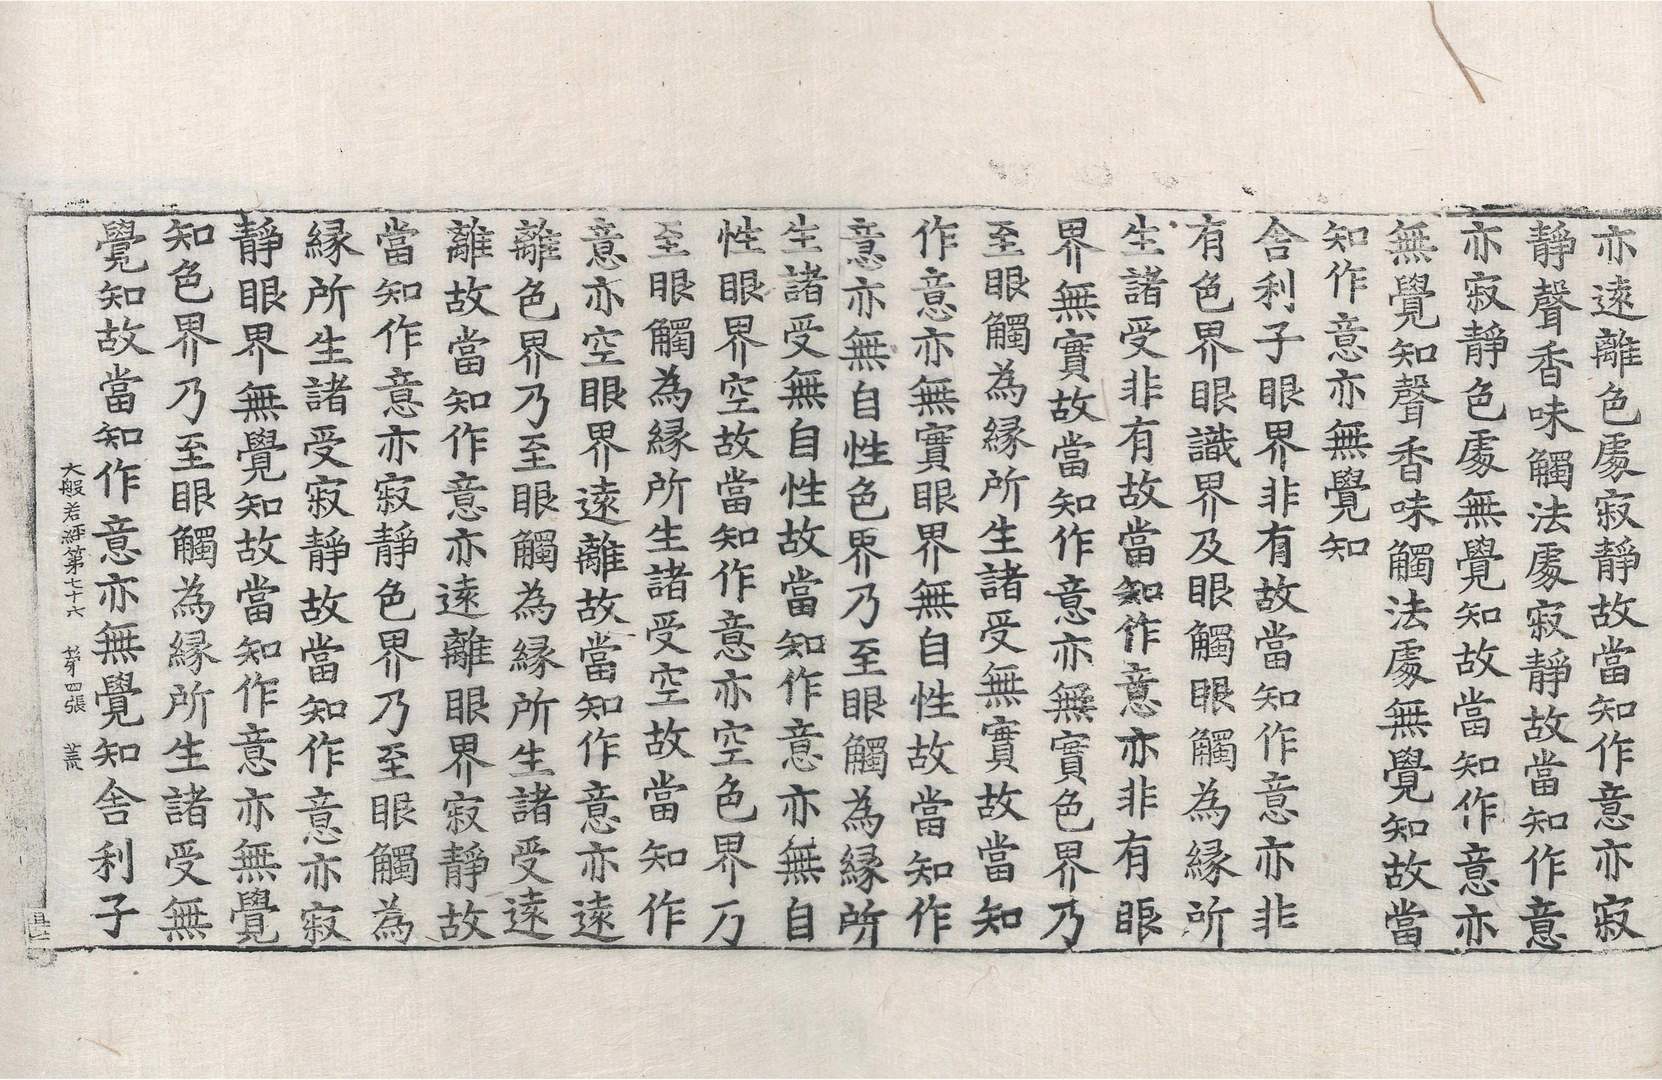 亦遠離色處寂靜故當知作意亦寂
靜聲香味觸法處寂靜故當知作意
亦寂靜色處無覺知故當知作意亦
無覺知聲香味觸法處無覺知故當
知作意亦無覺知
舍利子眼界非有故當知作意亦非
有色界眼識界及眼觸眼觸為縁所
生諸受非有故當知作意亦非有眼
界無實故當知作意亦無實色界乃
至眼觸為縁所生諸受無實故當知
作意亦無實眼界無自性故當知作
意亦無自性色界乃至眼觸為縁所
生諸受無自性故當知作意亦無自
性眼界空故當知作意亦空色界乃
至眼觸為縁所生諸受空故當知作
意亦空眼界遠離故當知作意亦遠
離色界乃至眼觸為縁所生諸受遠
離故當知作意亦遠離眼界寂靜故
當知作意亦寂靜色界乃至眼觸為
縁所生諸受寂靜故當知作意亦寂
靜眼界無覺知故當知作意亦無覺
知色界乃至眼觸為縁所生諸受無
覺知故當知作意亦無覺知舍利子
大般若經第七十六 第四張 荒